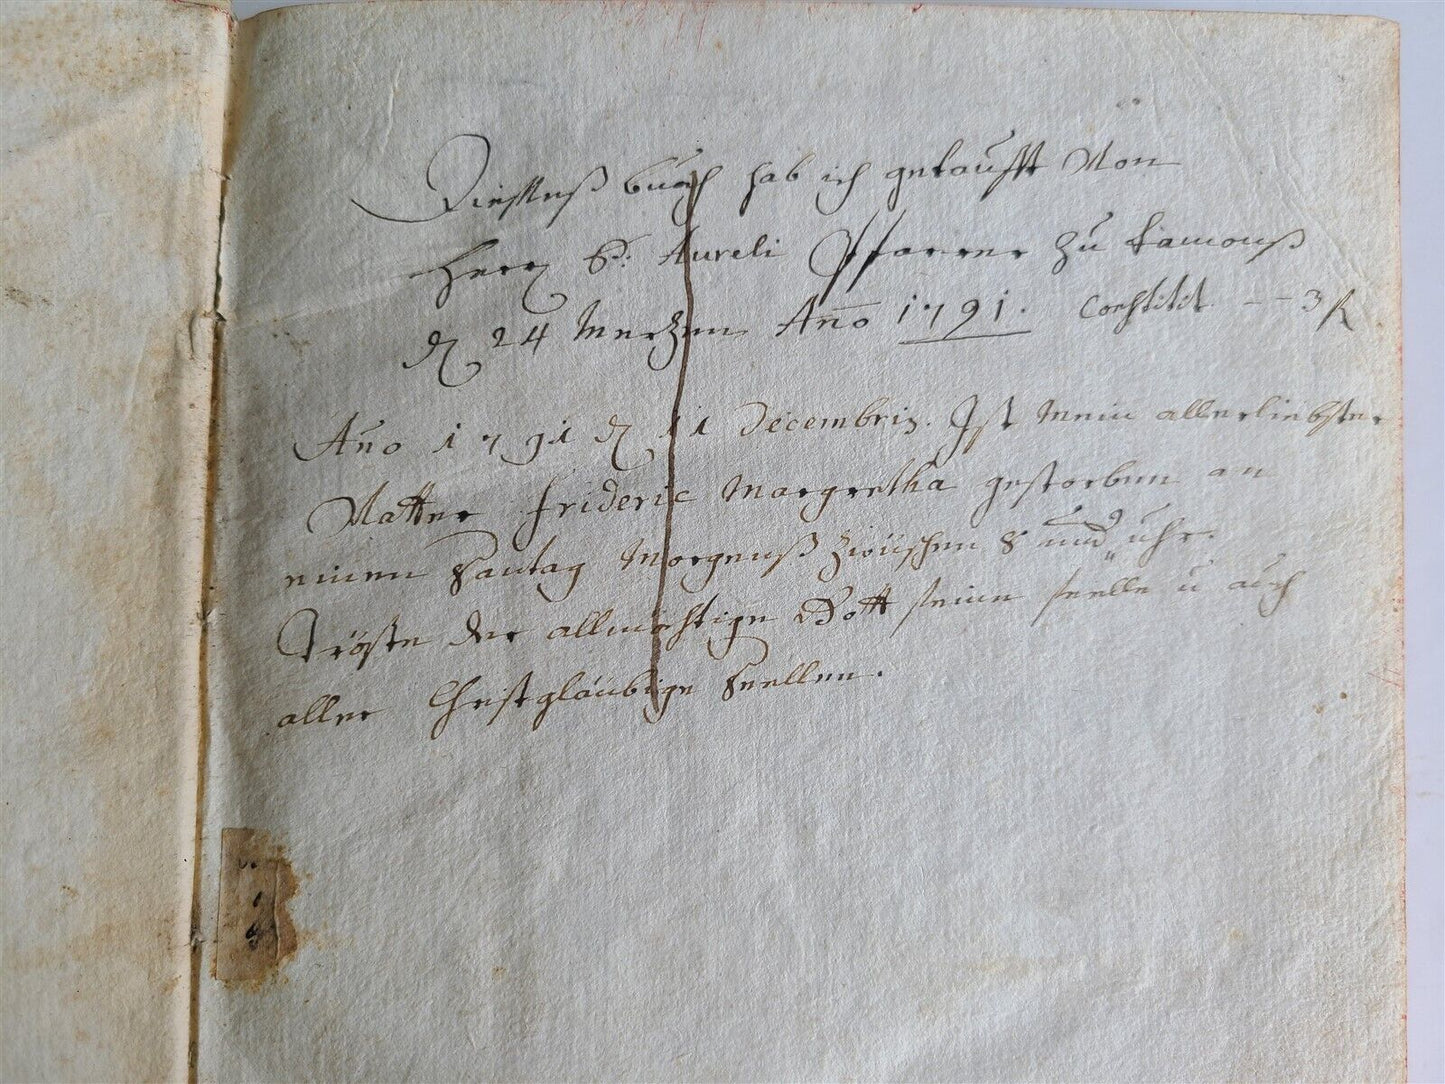 Diesses buoch hab ich gekaufft Von
Herr P: Aureli Pfarrer zu
dn 24 Mertzen Año 1791. Costitit -- 3 f
Año 1791 dn 11 Decembris. Ist Mein allerliebster
Vatter frideric Margretha gestorben an
einen Santag Morgenß zwüschen 8 und 9 uhr.
Tröste der allmächtige Gott seine seelle u auch
aller Christgläubige Seellen.